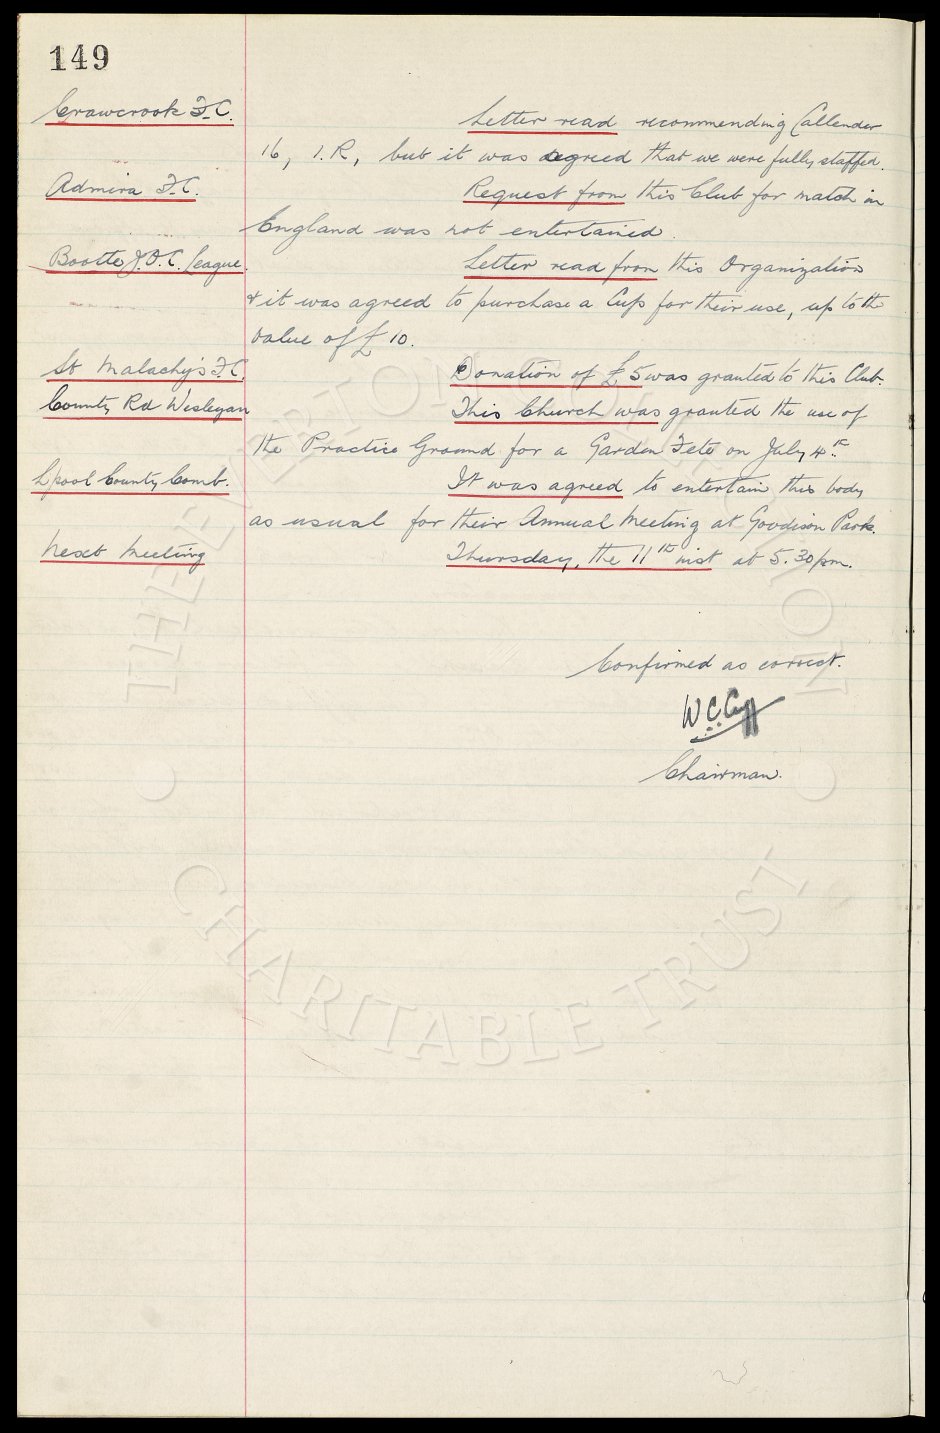 149
Crawcrook F.C.
Letter read recommending Callender
16, I.R, but it was agreed that we were fully staffed.
Admira F.C.
Request from this Club for match in
England was not entertained.
Bootle J.O.C. League.
Letter read from this Organization
& it was agreed to purchase a Cup for their use, up to the
value of £10.
St Malachy's F.C.
Donation of £5 was granted to this Club.
County Rd Wesleyan
This Church was granted the use of
the Practice Ground for a Garden Fete on July 4th.
L'pool County Comb.
It was agreed to entertain this body
as usual for their Annual Meeting at Goodison Park.
Next Meeting
Thursday, the 11th inst at 5.30pm.
Confirmed as correct.
W.C. Cuff
Chairman.
THE EVERTON COLLECTION
CHARITABLE TRUST